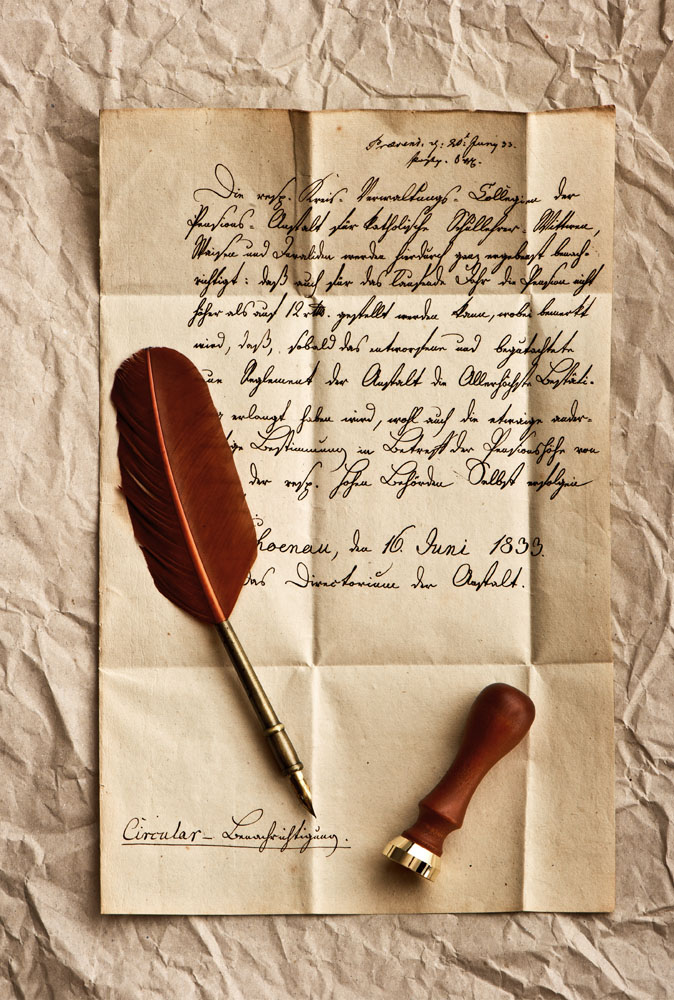 Praesent. d. 20t Juny 33.
Die resp. Kreis-Verwaltungs-Collegien der
Pensions-Anstalt für katholische Schullehrer-Wittwen,
Waisen und Invaliden werden hierdurch ganz ergebenst benach-
richtigt: daß auch für das laufende Jahr die Pension nicht
höher als auf 12 rtl. gestellt werden kann, wobei bemerkt
wird, daß, sobald das entworfene und begutachtete
neue Reglement der Anstalt die Allerhöchste Bestäti-
erlangt haben wird, wohl auch die etwaige ander-
ge Bestimmung in Betreff der Pensionshöhe von
der resp. hohen Behörden Selbst erfolgen
hoenau, den 16. Juni 1833.
Das Directorium der Anstalt.
Circular-Benachrichtigung.